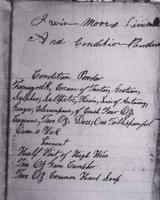 Irvin Moons Liniment
And Condition Powders
Condition Powder
Fenugreek, Cream of Tartar, Gentian,
Sulphur, Saltpetre, Resin, of Antimony,
Ginger, Each Four Oz
Cayenne, Two Oz, Dose, One Tablespoonful
a Week
Liniment
Half Pint of High Wine
Two Oz Gum Camphor
Two Oz Common Hard Soap